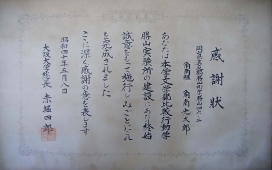 感謝状
角南組 角南七太郎
あなたは本学文学部比較行動学
勝山実験所の建設にあたり終始
誠意をもって施行しみごとにこれ
を完成されました
ここに深く感謝の意を表します
昭和四十年五月八日
大阪大学総長 赤堀四郎